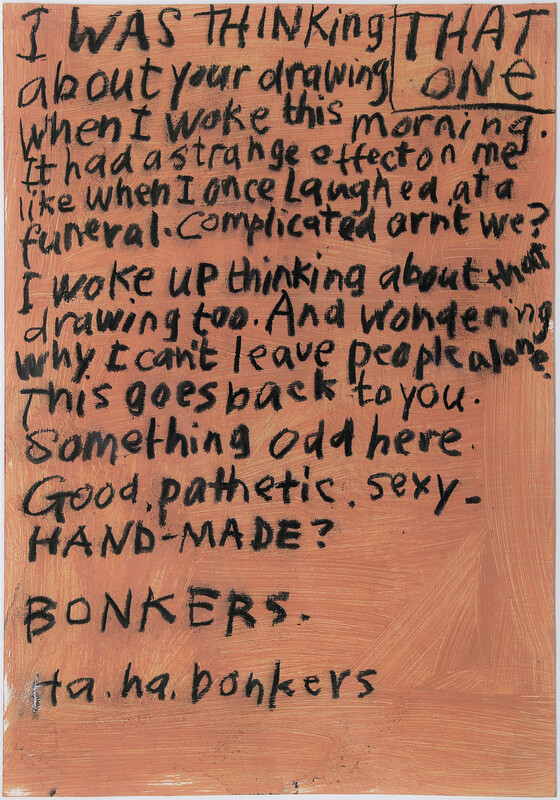 I WAS THINKing THAT
about your drawing ONE
when I woke this morning.
It had a strange effect on me
like when I once Laughed at a
funeral. Complicated arnt we?
I woke up thinking about that
drawing too. And wondering
why I can't leave people alone.
This goes back to you.
Something odd here.
Good, pathetic, sexy-
HAND-MADE?
BONKERS.
Ha. ha. bonkers